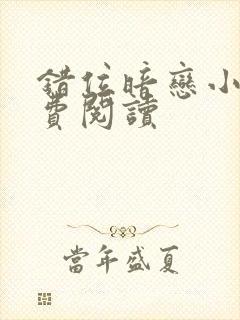 錯位暗戀小
費閱讀
當年盛夏